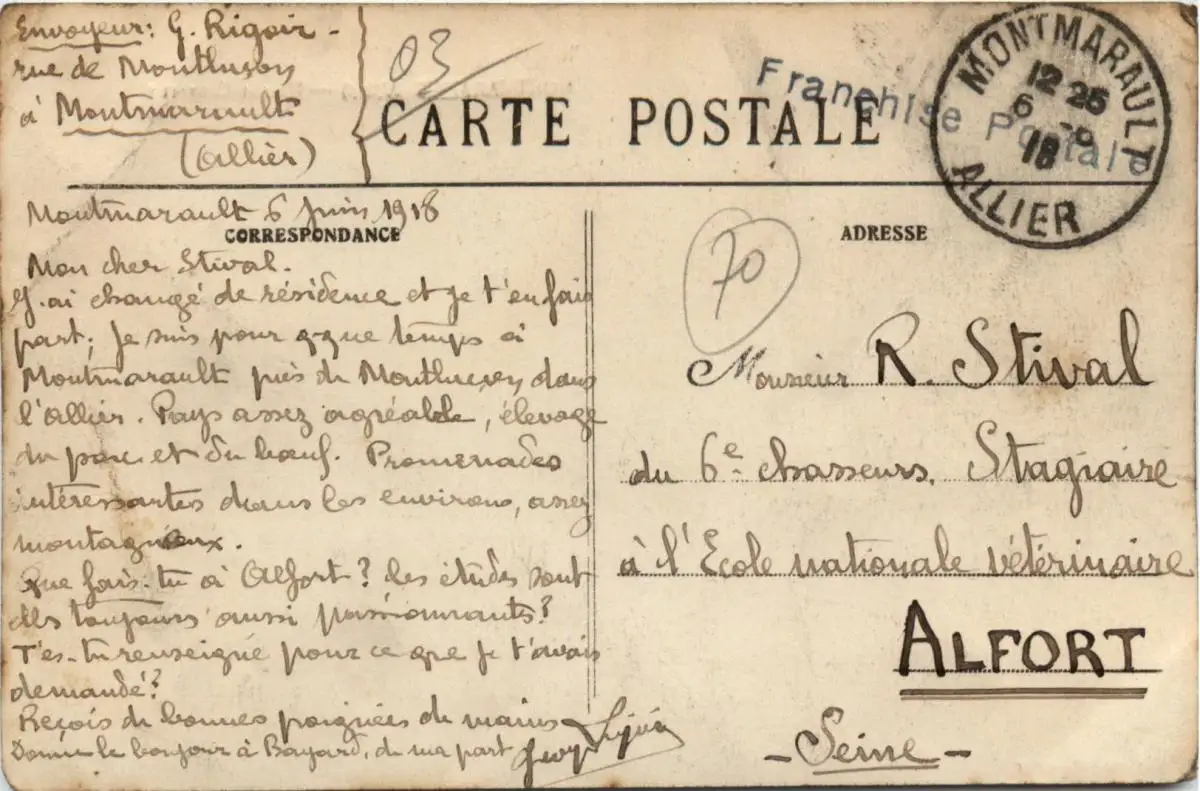 Envoyeur: G. Rigoir -
rue de Montluçon
à Montmarault
(Allier)
03
CARTE POSTALE
Franchise Postale
MONTMARAULT
12 25
6 -9
18
ALLIER
Montmarault 6 Juin 1918
CORRESPONDANCE
Mon cher Stival.
J'ai changé de résidence et je t'en fais
part; Je suis pour q-que temps à
Montmarault près de Montluçon dans
l'Allier. Pays assez agréable, élevage
du porc et du bœuf. Promenades
intéressantes dans les environs, assez
montagneux.
Que fais-tu à Alfort? les études sont
elles toujours aussi passionnants?
T'es-tu renseigné pour ce que je t'avais
demandé?
Reçois de bonnes poignées de mains
Donne le bonjour à Bayard, de ma part
ADRESSE
70
Monsieur R. Stival
du 6e chasseurs. Stagiaire
à l'Ecole nationale vétérinaire
ALFORT
- Seine -